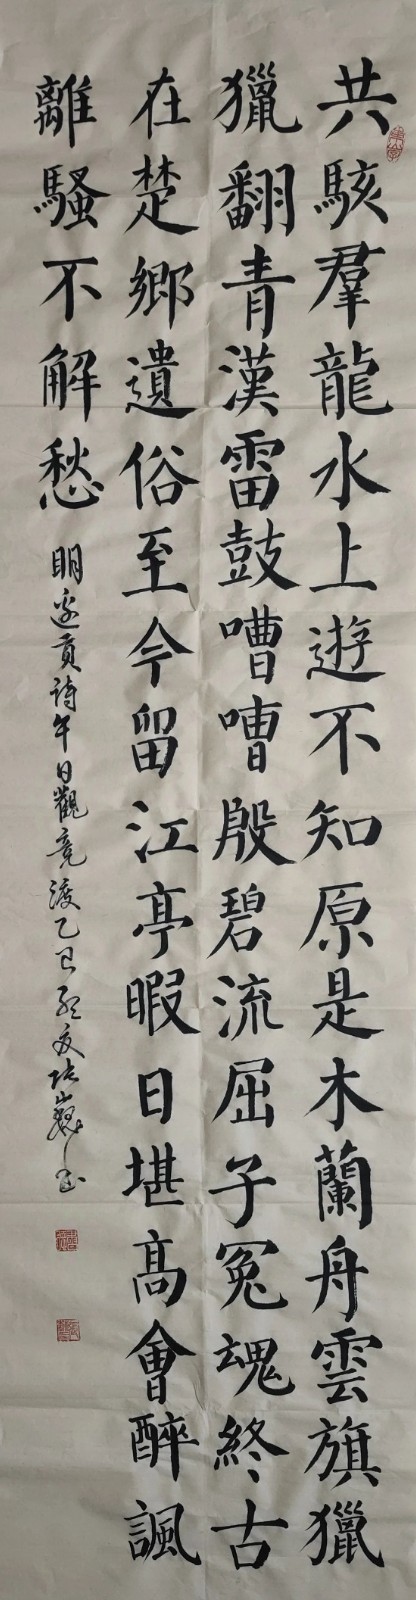 共駭羣龍水上遊不知原是木蘭舟雲旗獵
獵翻青漢雷鼓嘈嘈殷碧流屈子冤魂終古
在楚鄉遺俗至今留江亭暇日堪髙會醉諷
離騷不解愁
明邊貢詩午日觀竟渡乙巳夏张巍书